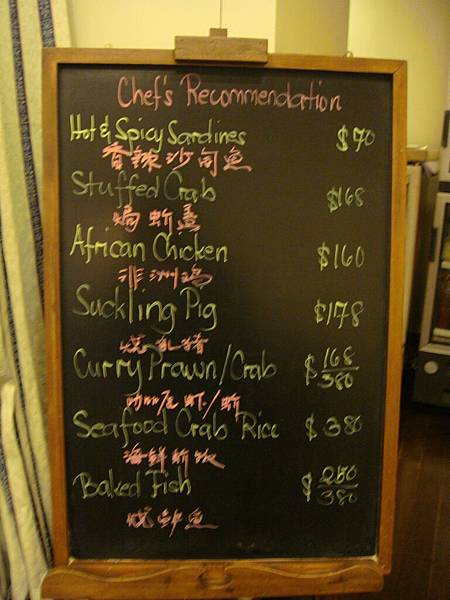 Chef's Recommendation
Hot & Spicy Sardines $70
香辣沙甸魚
Stuffed Crab $168
焗蚧蓋
African Chicken $160
非洲鸡
Suckling Pig $178
燒乳豬
Curry Prawn/Crab $168/380
咖喱虾/蚧
Seafood Crab Rice $380
海鮮蚧饭
Baked Fish $280/380
燒魚